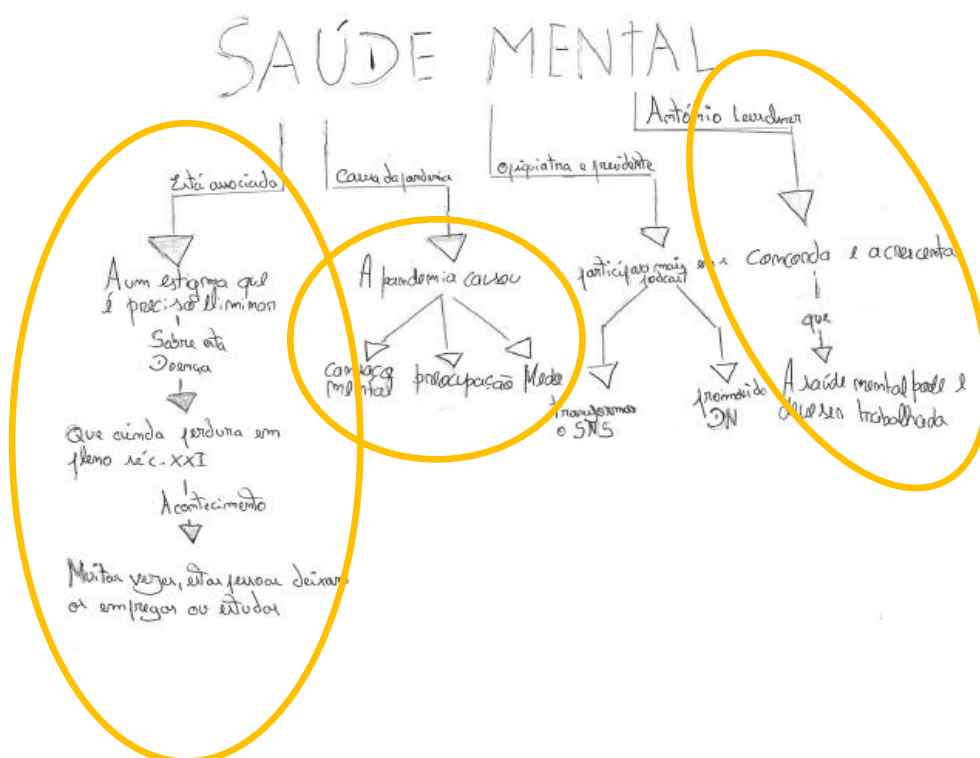 SAÚDE MENTAL
Está associada
A um estigma que
é preciso eliminar
Sabre esta
Doença
Que ainda perdura em
pleno séc-XXI
Acontecimento
Muitas vezes, estas pessoas deixam
os empregos ou estudos
Causa da pandemia
A pandemia causou
cansaço
mental
preocupação
Medo
O psiquiatra e presidente
mais
podcast
transformar
o SNS
promovido
DN
António Leuschner
Concorda e acrescenta
que
A saúde mental pode e
deve ser trabalhada